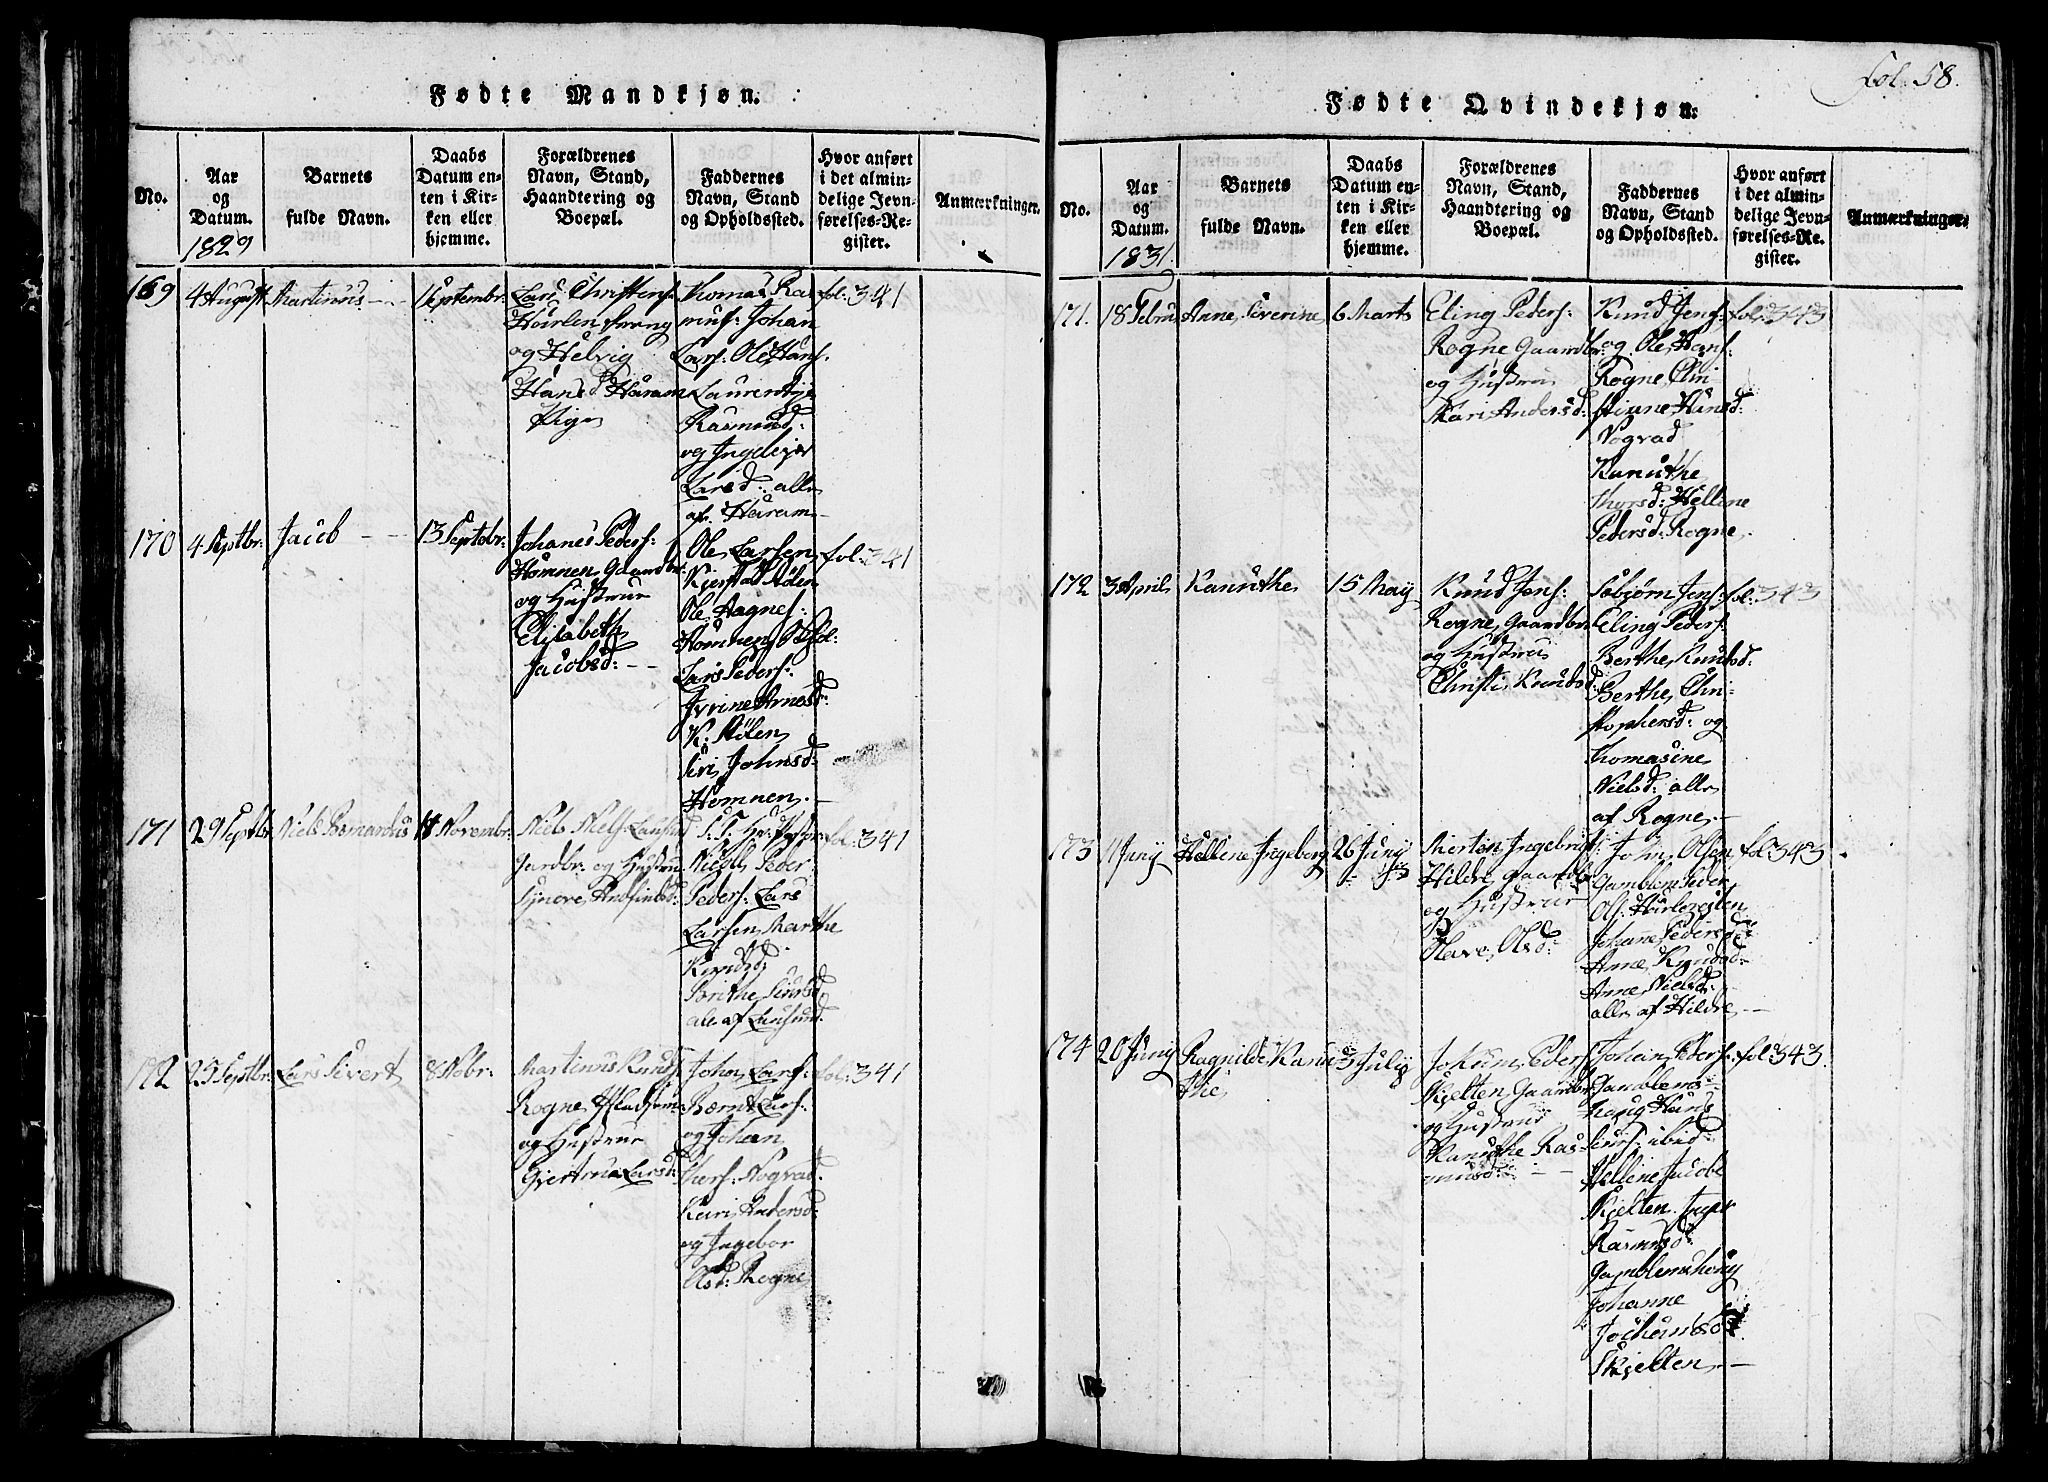 fol. 58.
Fødte Mandkjøn.
No.
Aar
og
Datum.
1829
Barnets
fulde Navn.
Daabs
Datum en-
ten i Kir-
ken eller
hjemme.
Forældrenes
Navn, Stand,
Haandtering og
Boepæl.
Faddernes
Navn, Stand
og Opholdssted.
Hvor anført
i det almin-
delige Jevn-
førelses-Re-
gister.
Anmærkninger.
169
4 August
Martinus
Septembr:
Lars Christens:
og Helvig
Hansd Haram
Pige
Thomas Ras
mus: Johan
Lars: Ole Hans:
Laurentje
Rasmusd:
og Ingeleger
Larsd: alle
af Haram
fol: 341
170
4 Septbr:
Jacob
13 Septbr:
Johanes Peders:
Homnen Gaardbr:
og Hustrue
Elisabeth
Jacobsd:
Ole Larsen
Kjerstad
Ole Aagnes:
Homnen
Lars Peders:
Arnesd:
Siri Johnsd:
Homnen.
fol: 341
171
29 Septbr
Niels Bernardus
Novembr:
Niels Niels: Lausund
Gardbr: og Hustrue
Synove Andfindsd:
S.T. Hr.
Peder
Peders: Lars
Larsen Marthe
Knudsd:
Brithe
alle af Lausund
fol: 341
172
25 Septbr:
Lars Sivert
8 Nobr:
Martinus Knuds:
Rogne
og Hustrue
Gjertrud Larsd:
John Lars:
Bernt Lars:
og Johan
Kari Andersd:
og Ingebor
Olsd: Rogne
fol: 341
Fødte Qvindekjøn.
No.
Aar
og
Datum.
1831.
Barnets
fulde Navn.
Daabs
Datum en-
ten i Kir-
ken eller
hjemme.
Forældrenes
Navn, Stand,
Haandtering og
Boepæl.
Faddernes
Navn, Stand
og Opholdssted.
Hvor anført
i det almin-
delige Jevn-
førelses-Re-
gister.
Anmærkninger.
171.
18 Febru
Anne Severine
6 Marts
Eling Peders:
Rogne Gaardbr:
og Hustrue
Kari Andersd:
Knud Jens:
og Ole Hans:
Rogne, Chri
stianne Hansd:
Nograd
Kanuthe
Hellene
Pedersd: Rogne
fol: 343
172
3 April
Kanuthe
15 May
Knud Jens:
Rogne, Gaardbr:
og Hustrue
Christi Knudsd:
Jens:
Eling Peders:
Berthe Knudsd:
Berthe Chri-
stophersd: og
Thomasine
Nielsd: alle
af Rogne
fol: 343
173
11 Juny
Hellene Ingeborg
26 Juny
Morten Ingebrigts:
Hildre, Gaardbr
og Hustrue
Olave Olsd:
John Olsen
Gamblem Peder
Ols:
Johanne Pedersd:
Anne Knudsd:
Anne Nielsd:
alle af Hildre
fol 343
174
20 Juny
Ragnilde Kanu
the
3 July
Jokum Peders
Skjelten Gaardbr
og Hustrue
Kanuthe Ras
musd:
Johan Peders:
Gamblems-
houg Hans
ibid:
Hellene Jacobs
Skjelten Inger
Rasmusd:
Gamblemshoug
Johanne
Jochumsd:
Skjelten
fol 343.